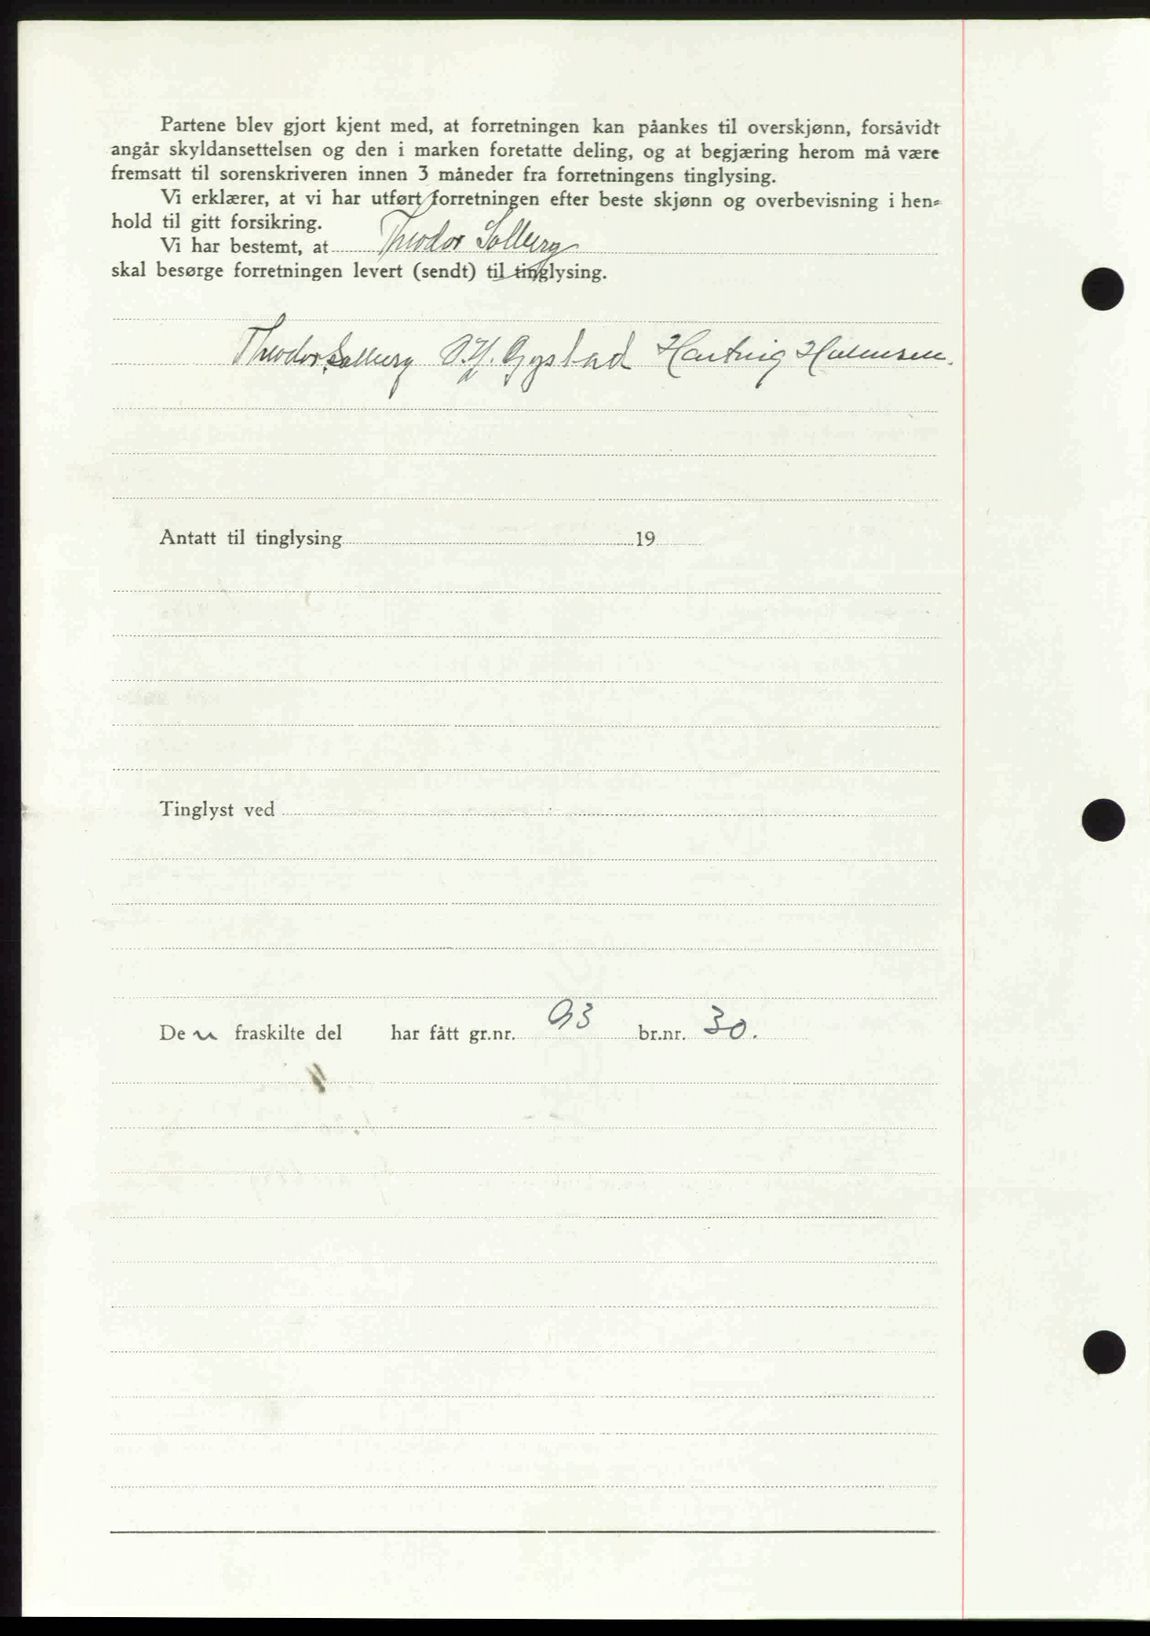 Partene blev gjort kjent med, at forretningen kan påankes til overskjønn, forsåvidt
angår skyldansettelsen og den i marken foretatte deling, og at begjæring herom må være
fremsatt til sorenskriveren innen 3 måneder fra forretningens tinglysing.
Vi erklærer, at vi har utført forretningen efter beste skjønn og overbevisning i hen-
hold til gitt forsikring.
Vi har bestemt, at Theodor Solberg
skal besørge forretningen levert (sendt) til tinglysing.
Theodor Solberg Hartvig
Antatt til tinglysing 19
Tinglyst ved
De n fraskilte del har fått gr.nr. 93 br.nr. 30.